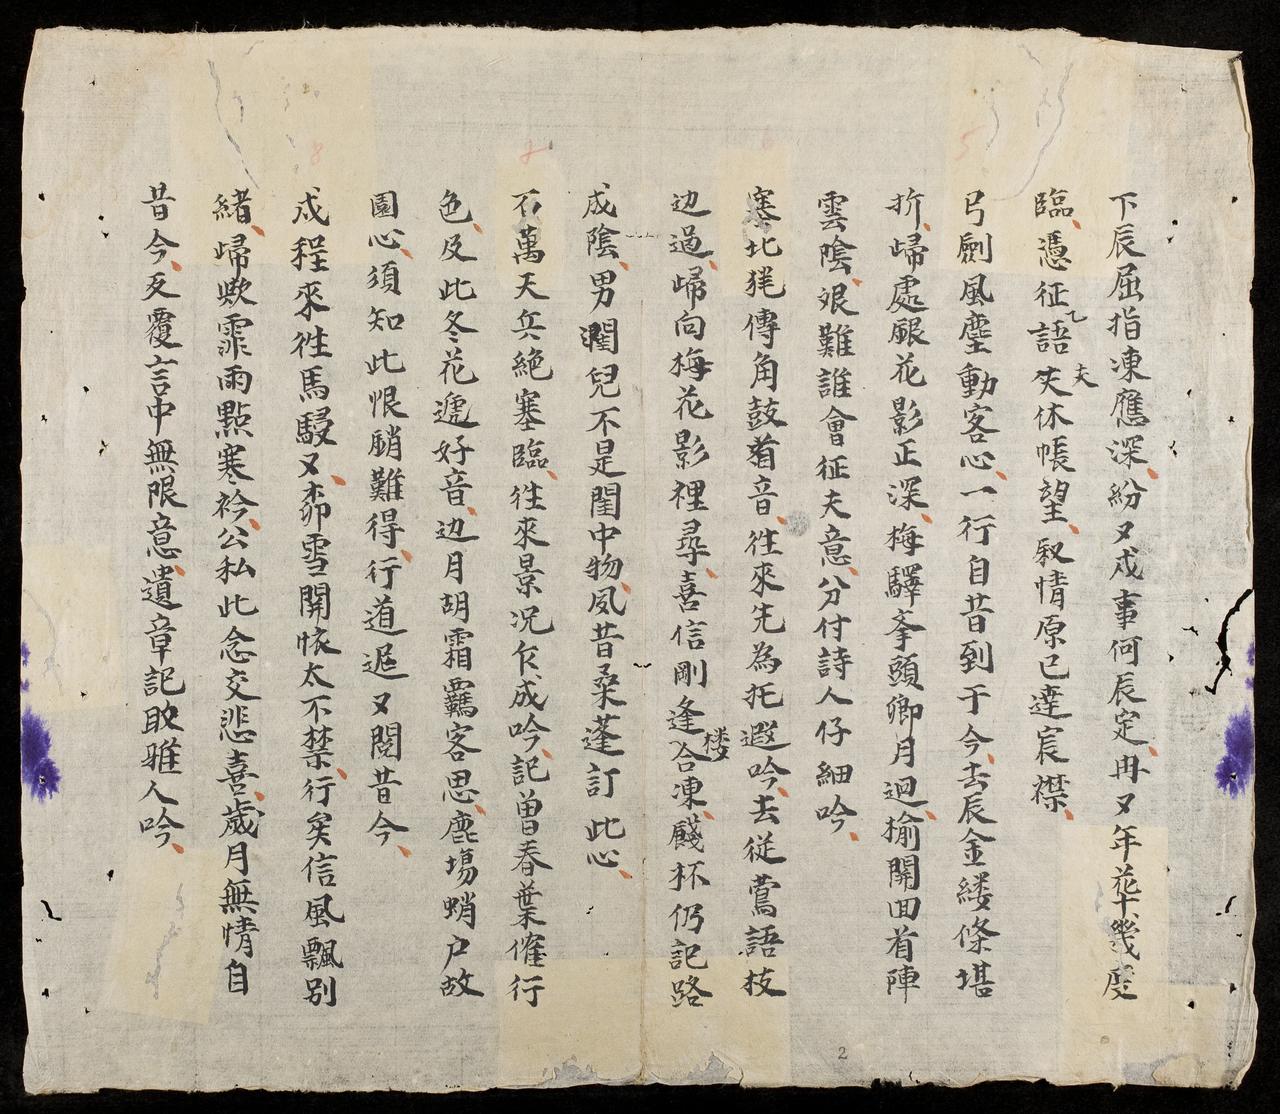 下辰屈指凍應深紛又戍事何辰定冉又年花幾度
臨憑征語夫休帳望叙情原已達宸襟
弓劍風塵動客心一行自昔到于今去辰金縷條堪
折歸處銀花影正深梅驛夆頭卿月迥榆關回首陣
雲陰艰難誰會征夫意分付詩人仔細吟
塞北羌傳角鼓音徃來先為托遐吟去従鶯語枝
边過歸向梅花影裡尋喜信剛逢合凍餞杯仍記路
楼
成陰男兒不是閨中物夙昔桑蓬訂此心
百萬天兵絕塞臨徃來景况乍成吟記曽春葉催行
色及此冬花遞好音边月胡霜羈客思鹿場蛸户故
園心須知此恨銷難得行道遲又閱昔今
戍程來徃馬駸又柰雪開帷太不禁行矣信風飄别
緒歸歟霏雨點寒衿公私此念交悲喜歳月無情自
昔今反覆言中無限意遺章記取雅人吟
2